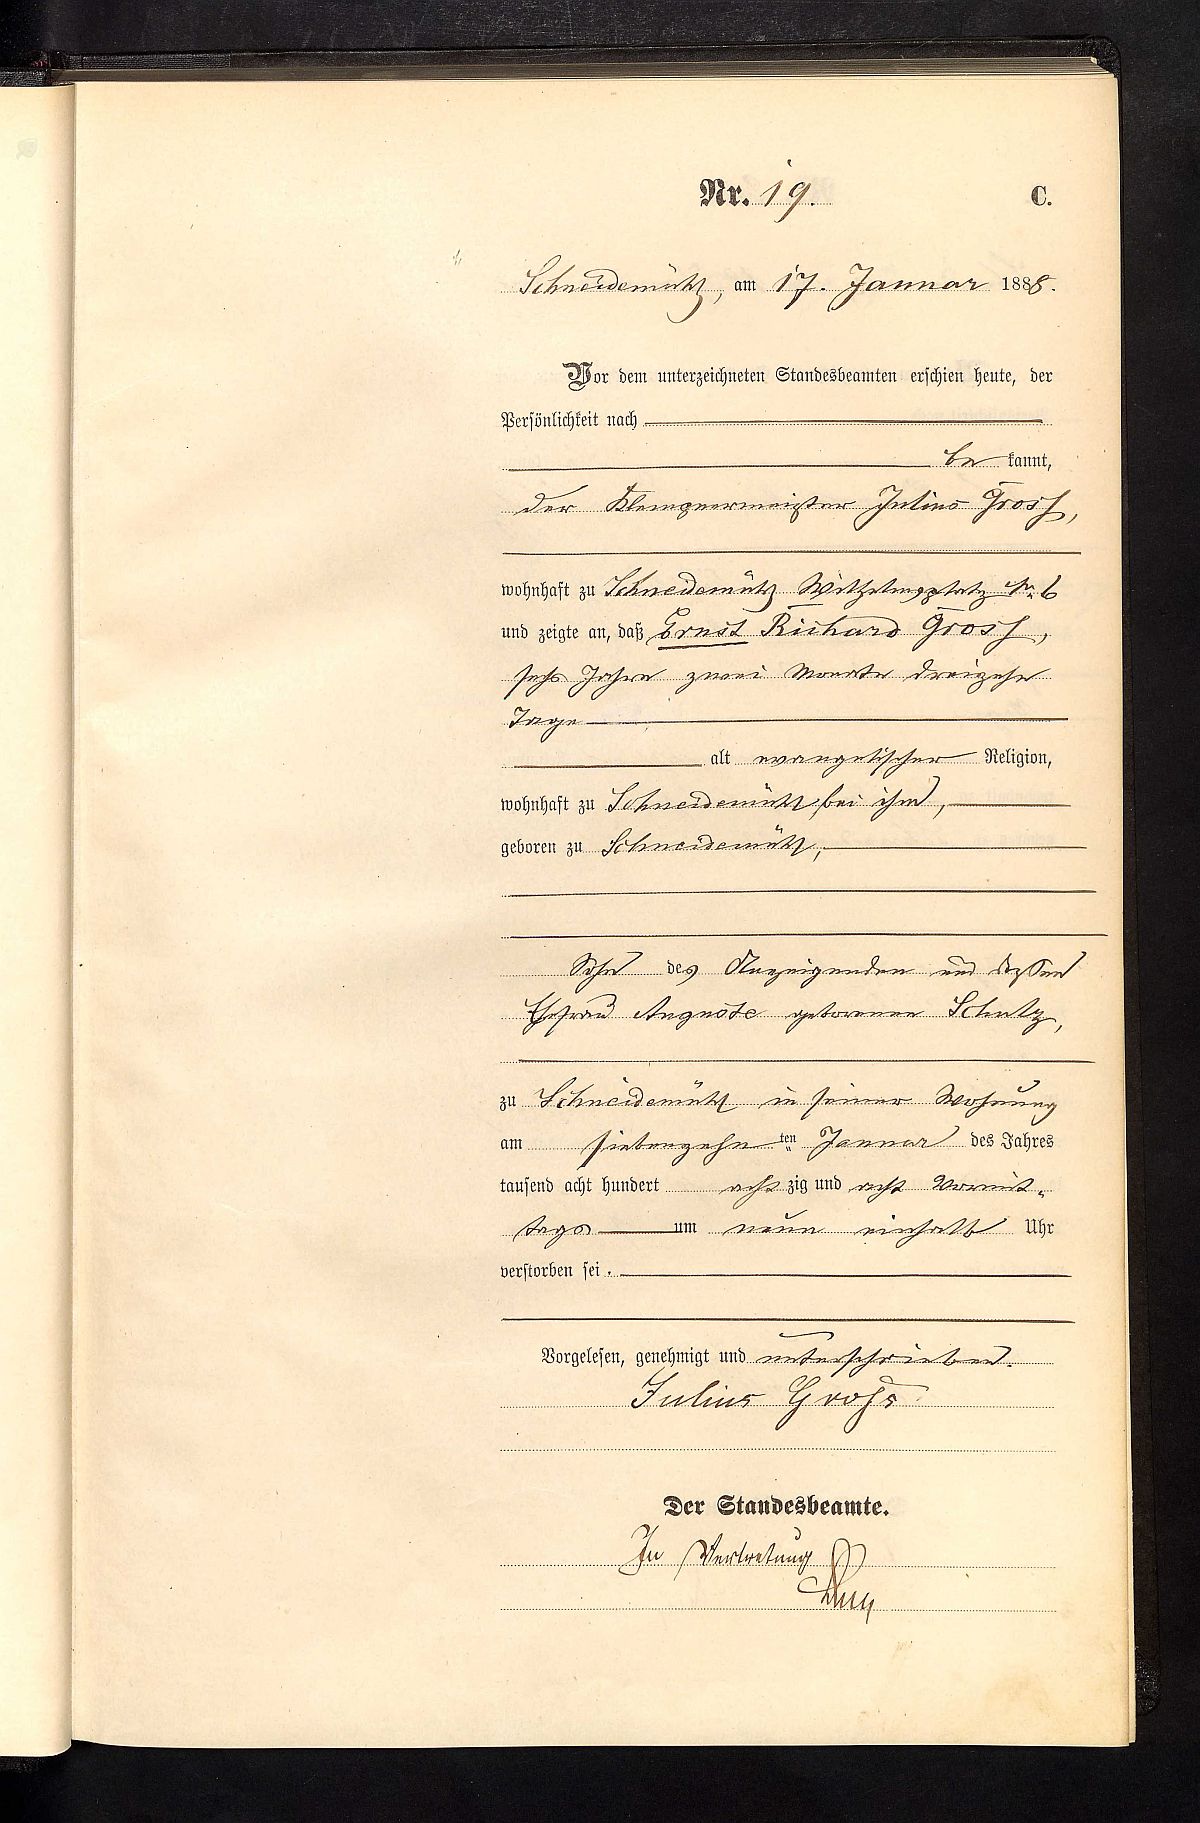 Nr. 19. C.
Schneidemühl, am 17. Januar 1888.
Vor dem unterzeichneten Standesbeamten erschien heute, der
Persönlichkeit nach
be kannt,
der Klempnermeister Julius Gross,
wohnhaft zu Schneidemühl Wilhelmsplatz No 6
und zeigte an, daß Ernst Richard Gross,
sechs Jahre zwei Monate dreizehn
Tage
alt evangelischer Religion,
wohnhaft zu Schneidemühl bei ihm,
geboren zu Schneidemühl,
Sohn des Anzeigenden und dessen
Ehefrau Auguste geborenen Schulz,
zu Schneidemühl in seiner Wohnung
am siebenzehn ten Januar des Jahres
tausend acht hundert acht zig und acht Vormit-
tags um neun einhalb Uhr
verstorben sei.
Vorgelesen, genehmigt und unterschrieben.
Julius Groß
Der Standesbeamte.
In Vertretung